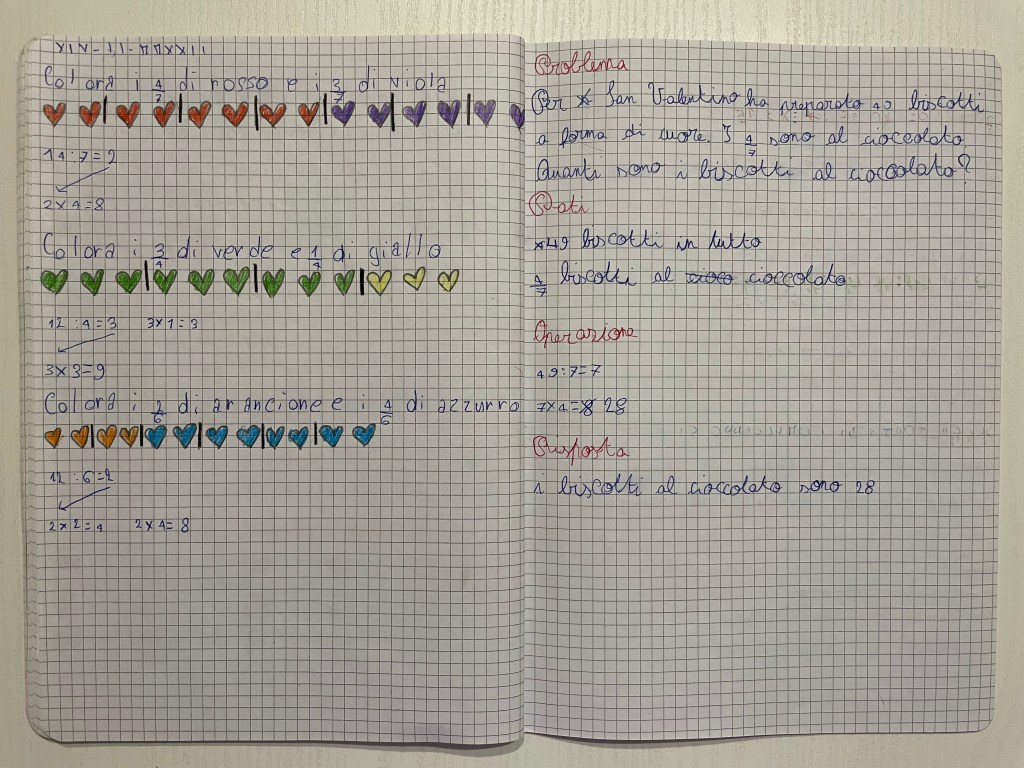 XIV-II-MMXXII
Colora i 4/7 di rosso e i 3/7 di viola
14:7=2
2x4=8
Colora i 3/4 di verde e 1/4 di giallo
12:4=3 3x1=3
3x3=9
Colora i 2/6 di arancione e i 4/6 di azzurro
12:6=2
2x2=4 2x4=8
Problema
Per San Valentino ha preparato 49 biscotti
a forma di cuore. I 4/7 sono al cioccolato.
Quanti sono i biscotti al cioccolato?
Dati
49 biscotti in tutto
4/7 biscotti al cioccolato
Operazione
49:7=7
7x4=8 28
Risposta
i biscotti al cioccolato sono 28